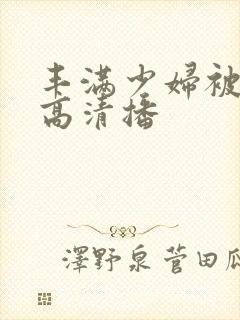 丰满少婦被
高清播
澤野泉菅田